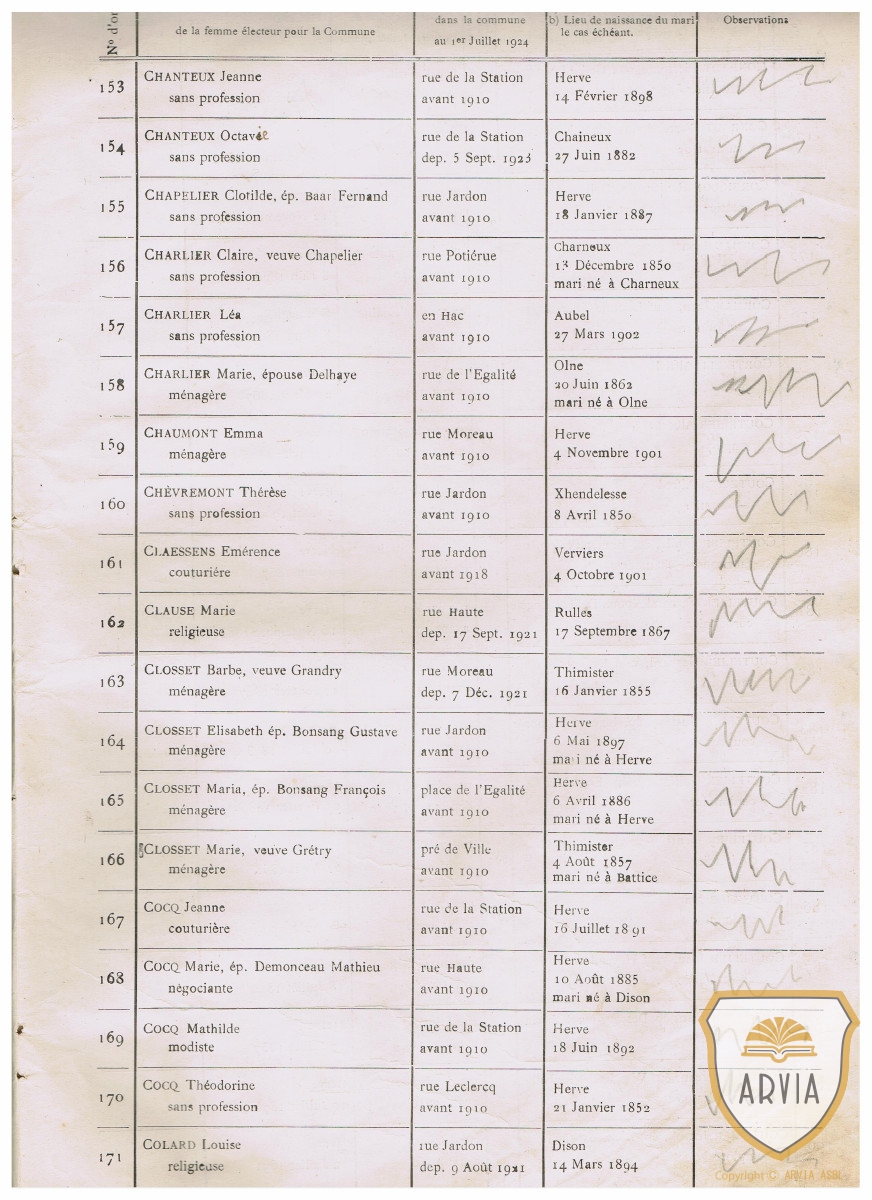 N° d'or
de la femme électeur pour la Commune
dans la commune
au 1er Juillet 1924
b) Lieu de naissance du mari
le cas échéant.
Observations
153
CHANTEUX Jeanne
sans profession
rue de la Station
avant 1910
Herve
14 Février 1898
154
CHANTEUX Octavie
sans profession
rue de la Station
dep. 5 Sept. 1923
Chaineux
27 Juin 1882
155
CHAPELIER Clotilde, ép. Baar Fernand
sans profession
rue Jardon
avant 1910
Herve
18 Janvier 1887
156
CHARLIER Claire, veuve Chapelier
sans profession
rue Potiérue
avant 1910
Charneux
13 Décembre 1850
mari né à Charneux
157
CHARLIER Léa
sans profession
en Hac
avant 1910
Aubel
27 Mars 1902
158
CHARLIER Marie, épouse Delhaye
ménagère
rue de l'Egalité
avant 1910
Olne
20 Juin 1862
mari né à Olne
159
CHAUMONT Emma
ménagère
rue Moreau
avant 1910
Herve
4 Novembre 1901
160
CHÈVREMONT Thérèse
sans profession
rue Jardon
avant 1910
Xhendelesse
8 Avril 1850
161
CLAESSENS Emérence
couturiére
rue Jardon
avant 1918
Verviers
4 Octobre 1901
162
CLAUSE Marie
religieuse
rue Haute
dep. 17 Sept. 1921
Rulles
17 Septembre 1867
163
CLOSSET Barbe, veuve Grandry
ménagère
rue Moreau
dep. 7 Déc. 1921
Thimister
16 Janvier 1855
164
CLOSSET Elisabeth ép. Bonsang Gustave
ménagère
rue Jardon
avant 1910
Herve
6 Mai 1897
mari né à Herve
165
CLOSSET Maria, ép. Bonsang François
ménagère
place de l'Egalité
avant 1910
Herve
6 Avril 1886
mari né à Herve
166
CLOSSET Marie, veuve Grétry
ménagère
pré de Ville
avant 1910
Thimister
4 Août 1857
mari né à Battice
167
COCQ Jeanne
couturière
rue de la Station
avant 1910
Herve
16 Juillet 1891
168
COCQ Marie, ép. Demonceau Mathieu
négociante
rue Haute
avant 1910
Herve
10 Août 1885
mari né à Dison
169
COCQ Mathilde
modiste
rue de la Station
avant 1910
Herve
18 Juin 1892
170
COCQ Théodorine
sans profession
rue Leclercq
avant 1910
Herve
21 Janvier 1852
171
COLARD Louise
religieuse
rue Jardon
dep. 9 Août 1921
Dison
14 Mars 1894
ARVIA
Copyright © ARVIA ASBL